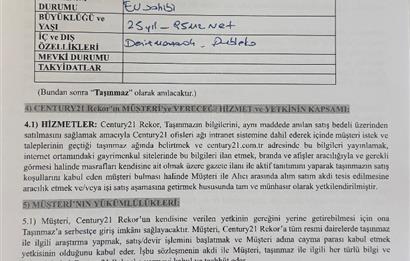 DURUMU Ev sahibi
BÜYÜKLÜĞÜ ve
YAŞI 25 yıl - 95m2 net
İÇ ve DIŞ
ÖZELLİKLERİ
MEVKİ DURUMU
TAKYİDATLAR
(Bundan sonra "Taşınmaz" olarak anılacaktır.)
4) CENTURY21 Rekor'un MÜŞTERİ'ye VERECEĞİ HİZMET ve YETKİNİN KAPSAMI:
4.1) HİZMETLER: Century21 Rekor, Taşınmazın bilgilerini, aynı maddede anılan satış bedeli üzerinden
satılmasını sağlamak amacıyla Century21 ofisleri ağı intranet sistemine dahil ederek içinde müşteri istek ve
taleplerinin geçtiği taşınmaz ağında belirtmek ve century21.com.tr adresinde bu bilgileri yayınlamak,
internet ortamındaki gayrimenkul sitelerinde bu bilgileri ilan etmek, branda ve afişler aracılığıyla ve gerekli
görmesi halinde masrafları kendisine ait olmak üzere gazete ilanı ile aktif tanıtım yaparak taşınmazın satış
koşullarını kabul eden müşteri bulması halinde Müşteri ile Alıcı arasında alım satım akdi tesis edilmesine
aracılık etmek ve/veya işi satış aşamasına getirmek hususunda tam ve münhasır olarak yetkilendirilmiştir.
5) MÜŞTERİ'NİN YÜKÜMLÜLÜKLERİ:
5.1) Müşteri, Century21 Rekor'un kendisine verilen yetkinin gereğini yerine getirebilmesi için ona
Taşınmaz'a serbestçe giriş imkânı sağlayacaktır. Müşteri, Century21 Rekor'a tüm resmi dairelerde taşınmaz
ile ilgili araştırma yapmak, satış/devir işlemini başlatmak ve Müşteri adına cayma parası kabul etmek
yetkisinin olduğunu kabul eder. İşbu sözleşmenin akdi ile Müşteri, taşınmaz ile ilgili her türlü bilgi ve